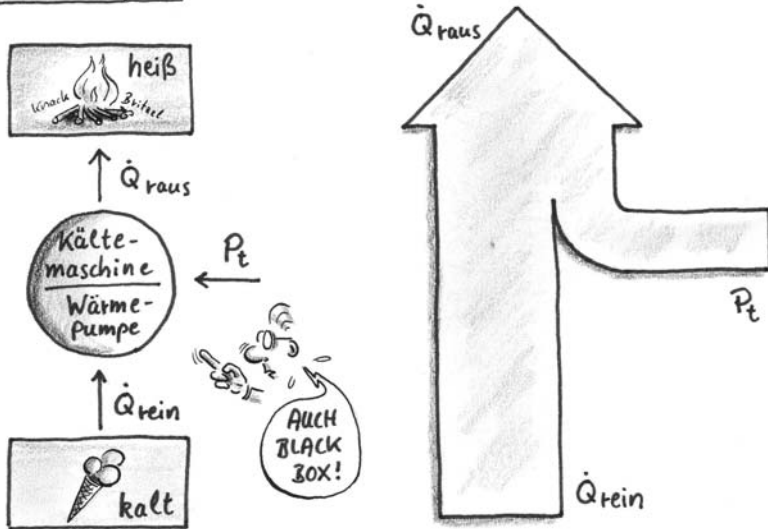 heiß
Knack
Britzel
Q̇raus
Kälte-
maschine
Wärme-
Pumpe
Pt
Q̇rein
AUCH
BLACK
BOX!
kalt
Q̇raus
Pt
Q̇rein